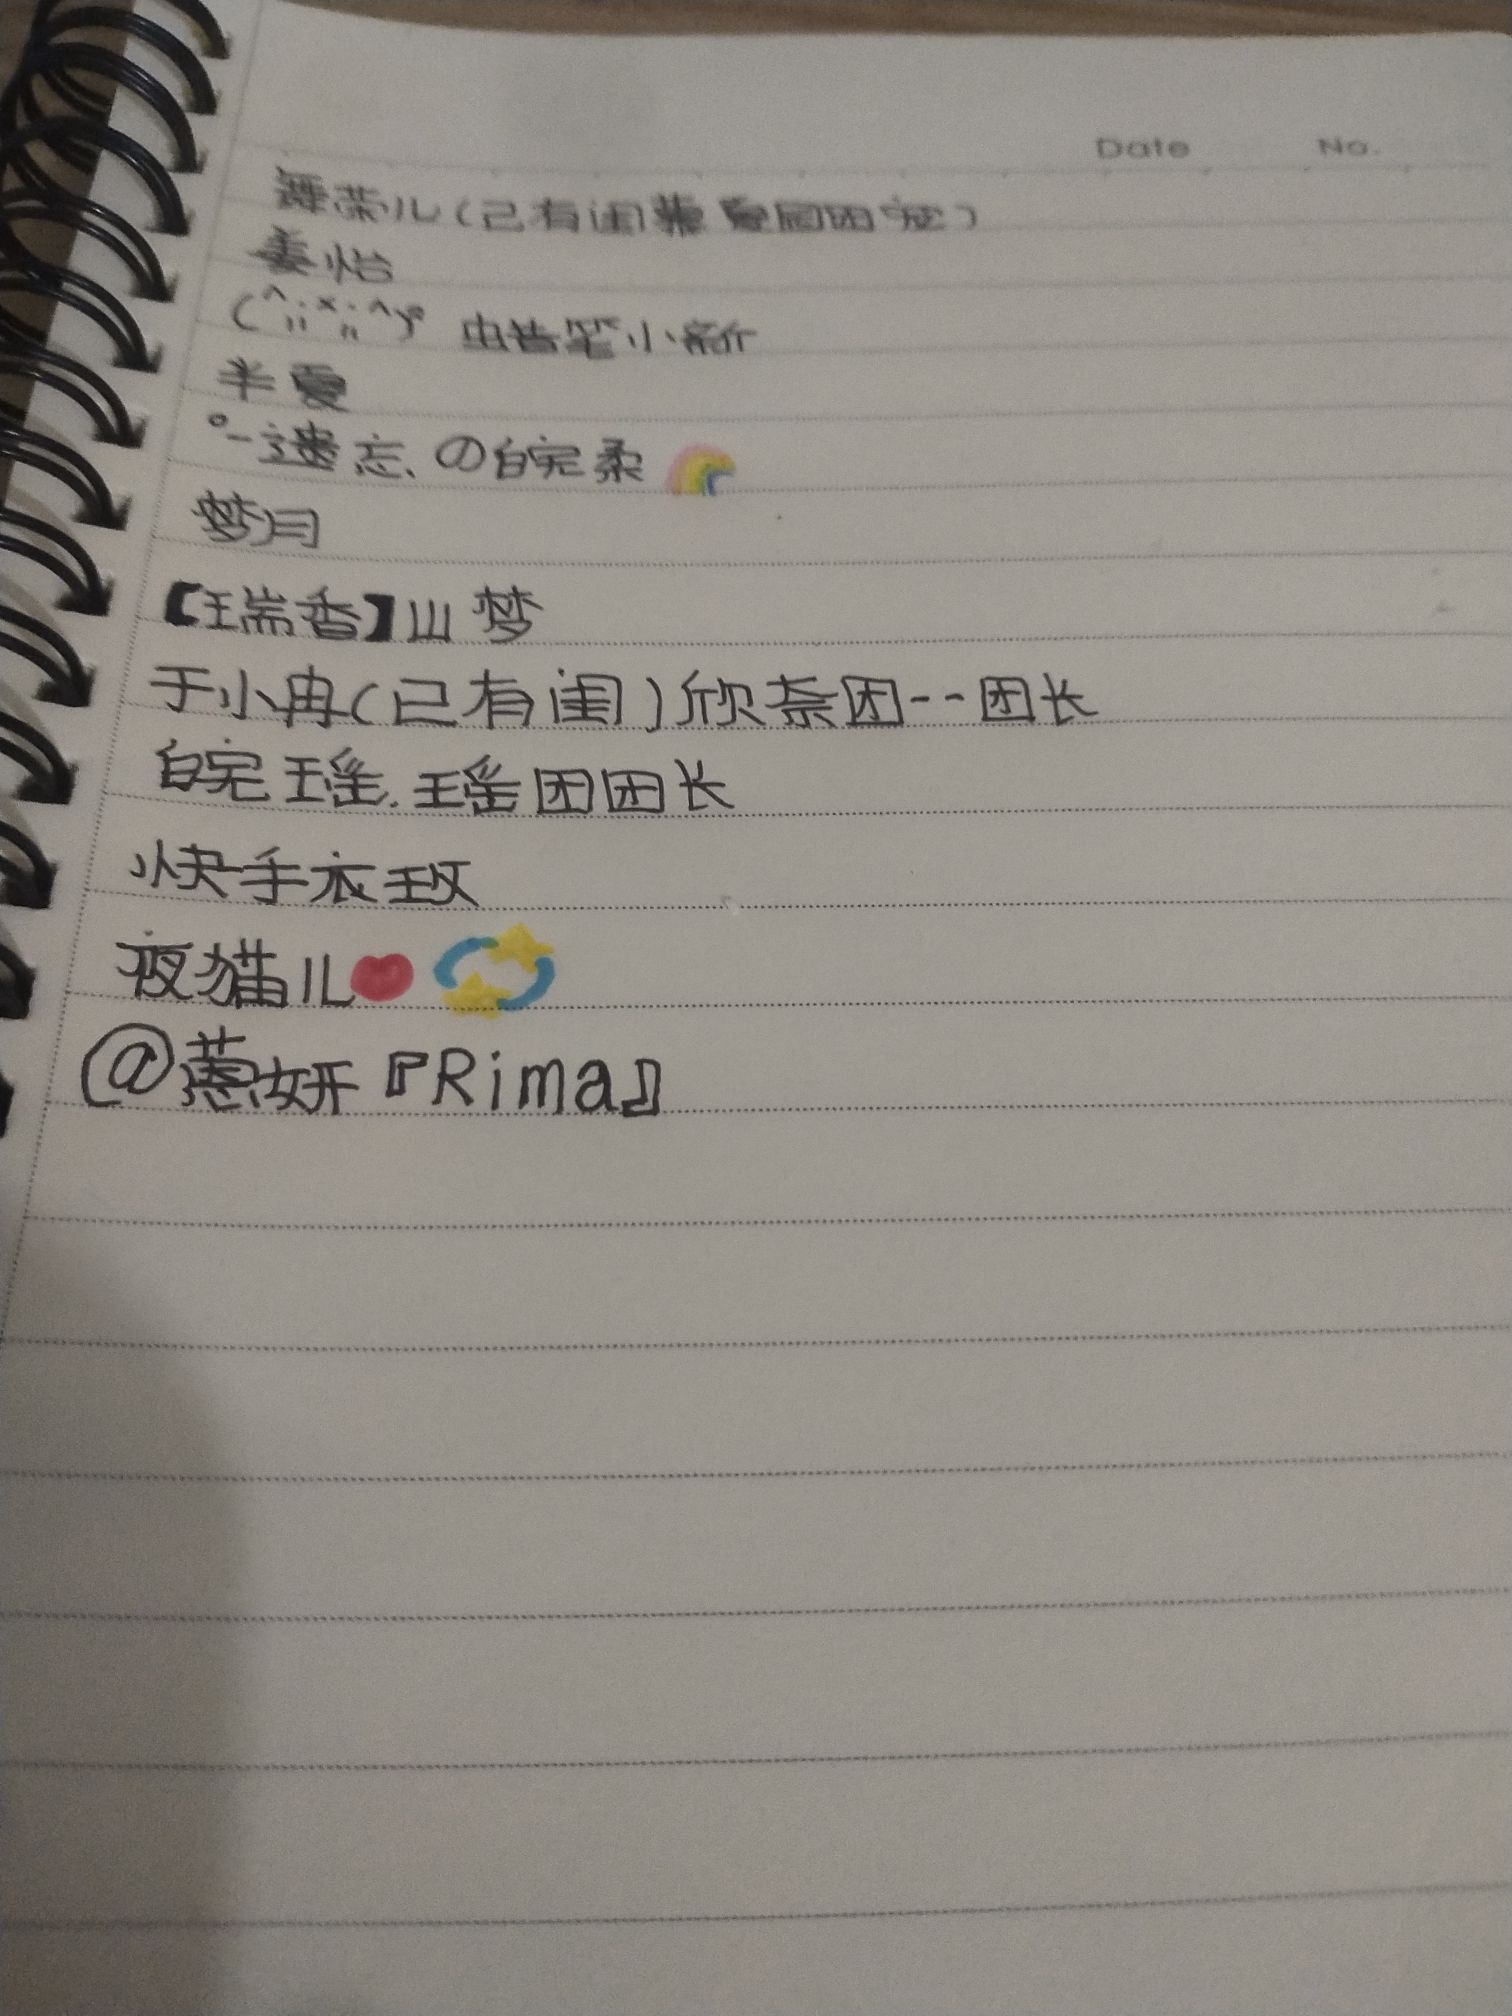 Date No.
舞荣儿(己有闺
姜怡
(^ x ^)° 蜡笔小新
半夏
°-遗忘、の皖柔
梦月
【瑞香】山梦
于小冉(己有闺)欣奈团--团长
皖瑶.瑶团团长
快手衣玫
夜猫儿
@蕙妍『Rima』